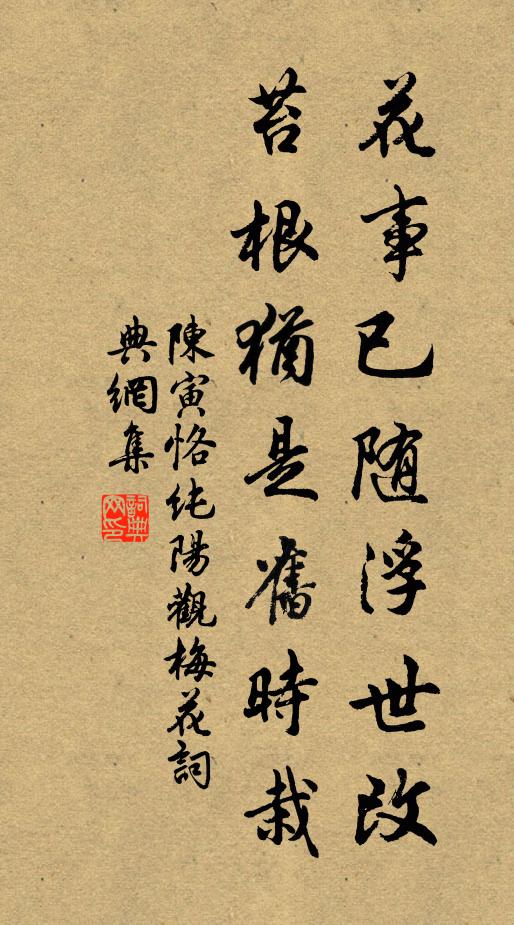 花事已随浮世改
苔根猶是舊時栽
陳寅恪純陽觀梅花詞
典網集
詞典網印